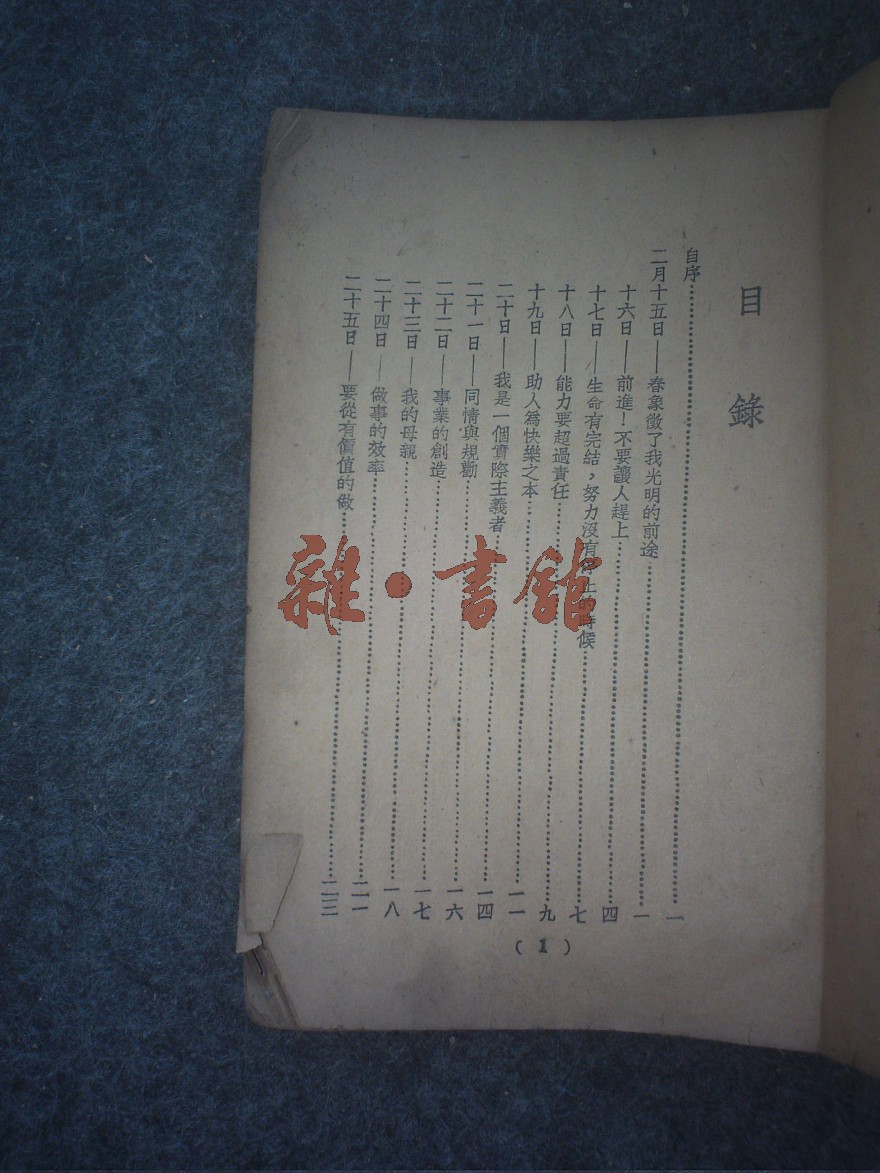 目錄
自序……一
二月十五日——春象徵了我光明的前途……一
十六日——前進！不要讓人趕上……四
十七日——生命有完結，努力沒有停止的時候……七
十八日——能力要超過責任……九
十九日——助人爲快樂之本……一一
二十日——我是一個實際主義者……一四
二十一日——同情與規勸……一六
二十二日——事業的創造……一七
二十三日——我的母親……一八
二十四日——做事的效率……二一
二十五日——要從有價值的做……二三
(1)
雜·書館